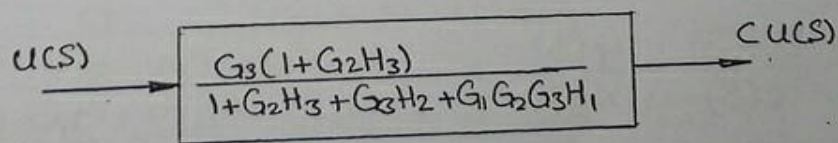 U(S)
G3(1+G2H3)
1+G2H3+G3H2+G1G2G3H1
CU(S)